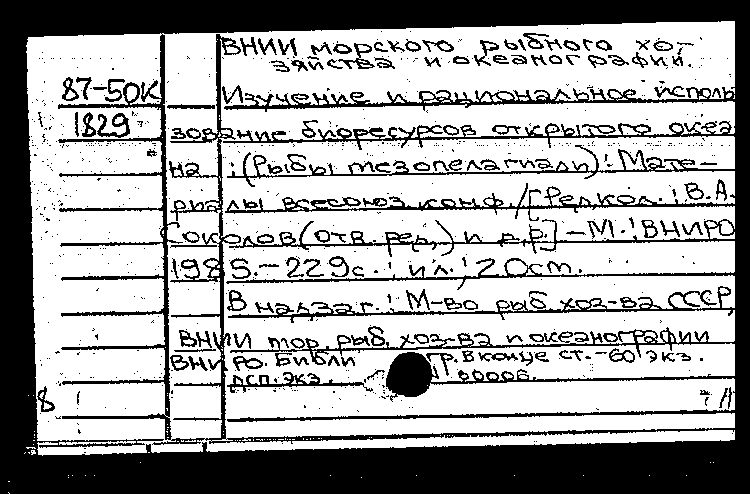 ВНИИ морского рыбного хо-
зяйства и океанографии.
87-50К Изучение и рациональное исполь
1829 зование биоресурсов открытого океа
на : (Рыбы мезопелагиали) : Мате-
риалы всесоюз. конф. / [Редкол. : В.А.
Соколов (отв. ред.) и др.] - М. : ВНИРО
1985. - 229с. : ил.; 20см.
В надзаг. : М-во рыб. хоз-ва СССР,
ВНИИ мор. рыб. хоз-ва и океанографии
ВНИРО. Библи гр. в конце ст. - 60 экз.
экз.
8